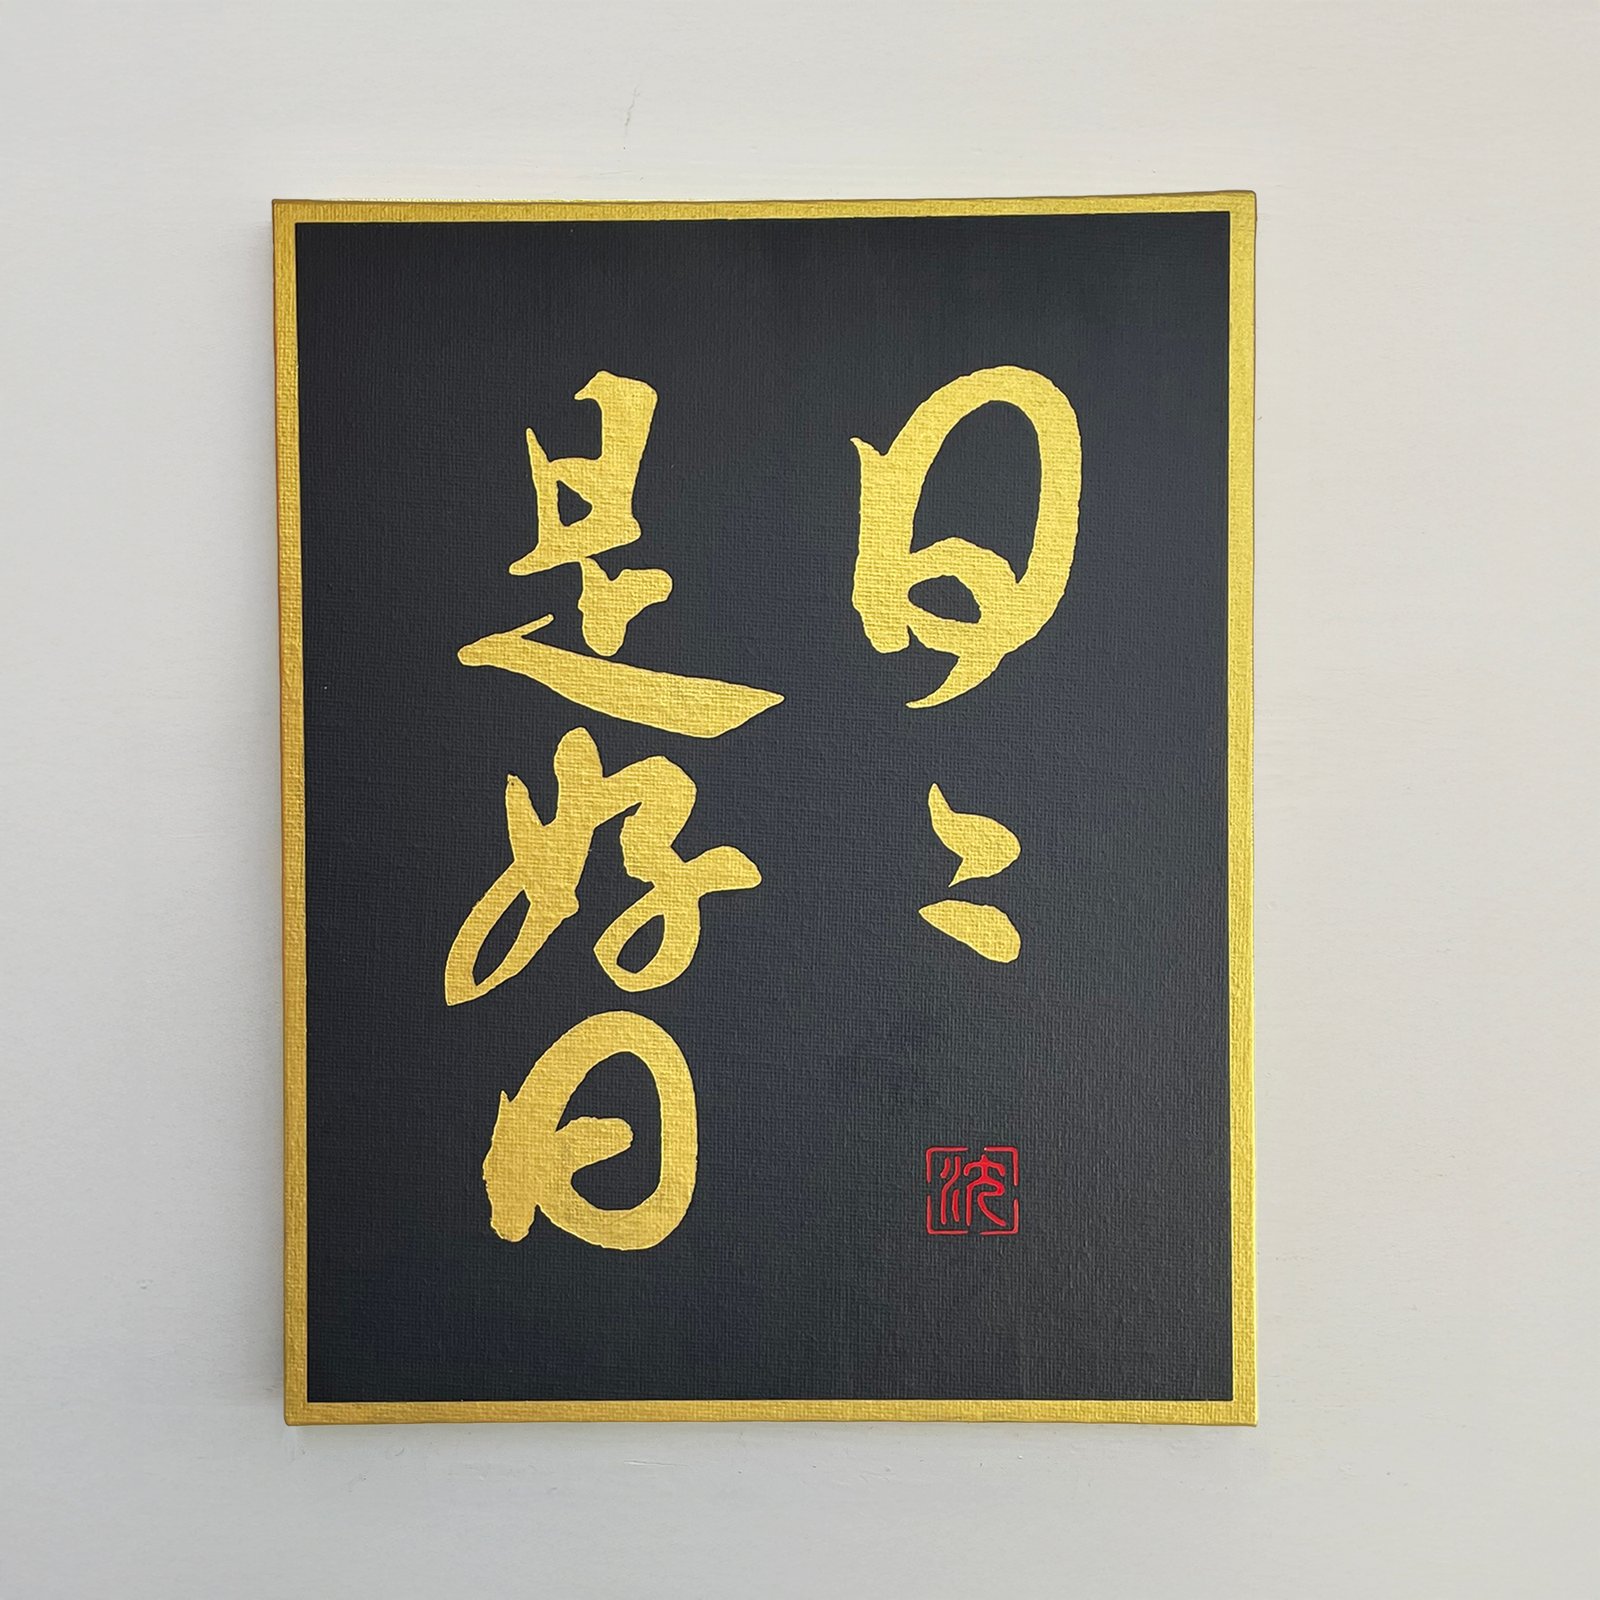 日々
是好日
沈